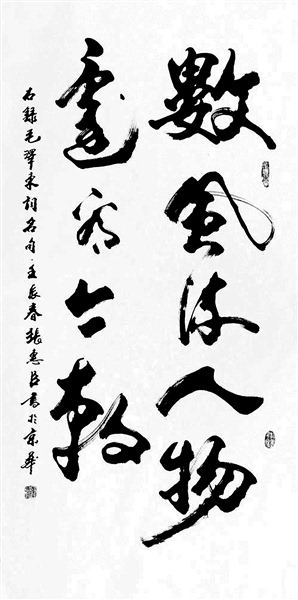 數風流人物
還看今朝
右錄毛澤東詞名句·壬辰春張惠臣書於京華